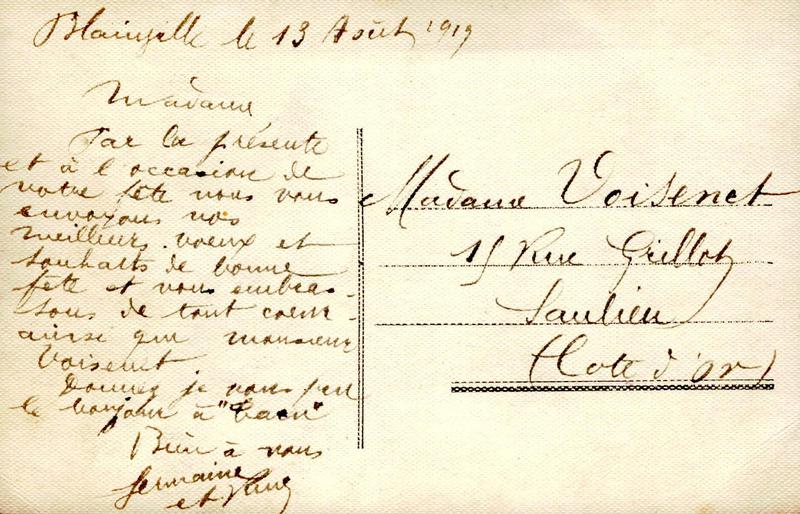 Blainville le 13 Août 1919
Madame
Par la présente
et à l'occasion de
votre fête nous vous
envoyons nos
meilleurs voeux et
souhaits de bonne
fête et vous embras-
sons de tout coeur
ainsi que monsieur
Voisenet
Donnez je vous prie
le bonjour à
Bien à vous
Germaine
et
Madame Voisenet
15 Rue Grillot
Saulieu
(Cote d'Or)